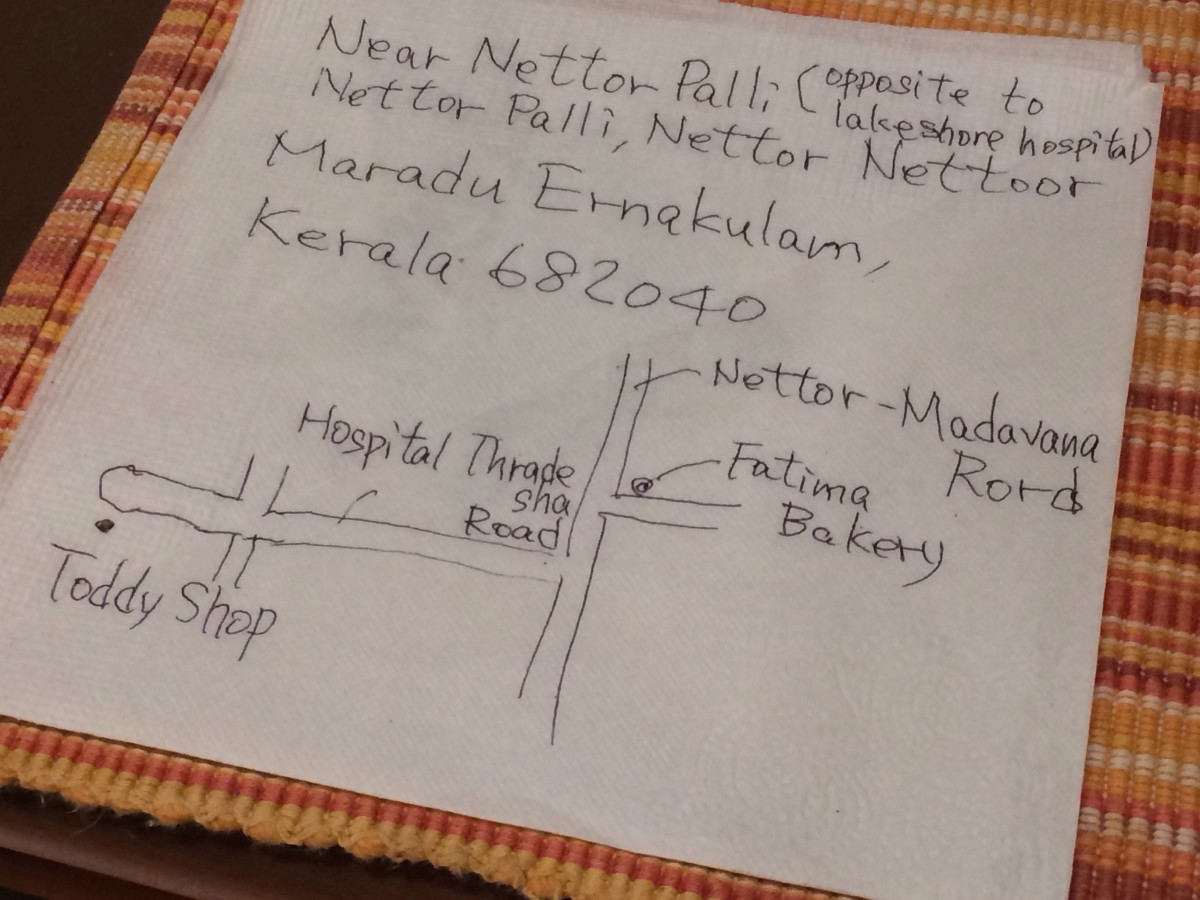 Near Nettor Palli (opposite to
lakeshore hospital)
Nettor Palli, Nettor Nettoor
Maradu Ernakulam,
Kerala 682040
Nettor-Madavana
Rord
Hospital Thrade
sha
Road
Fatima
Bakery
Toddy Shop